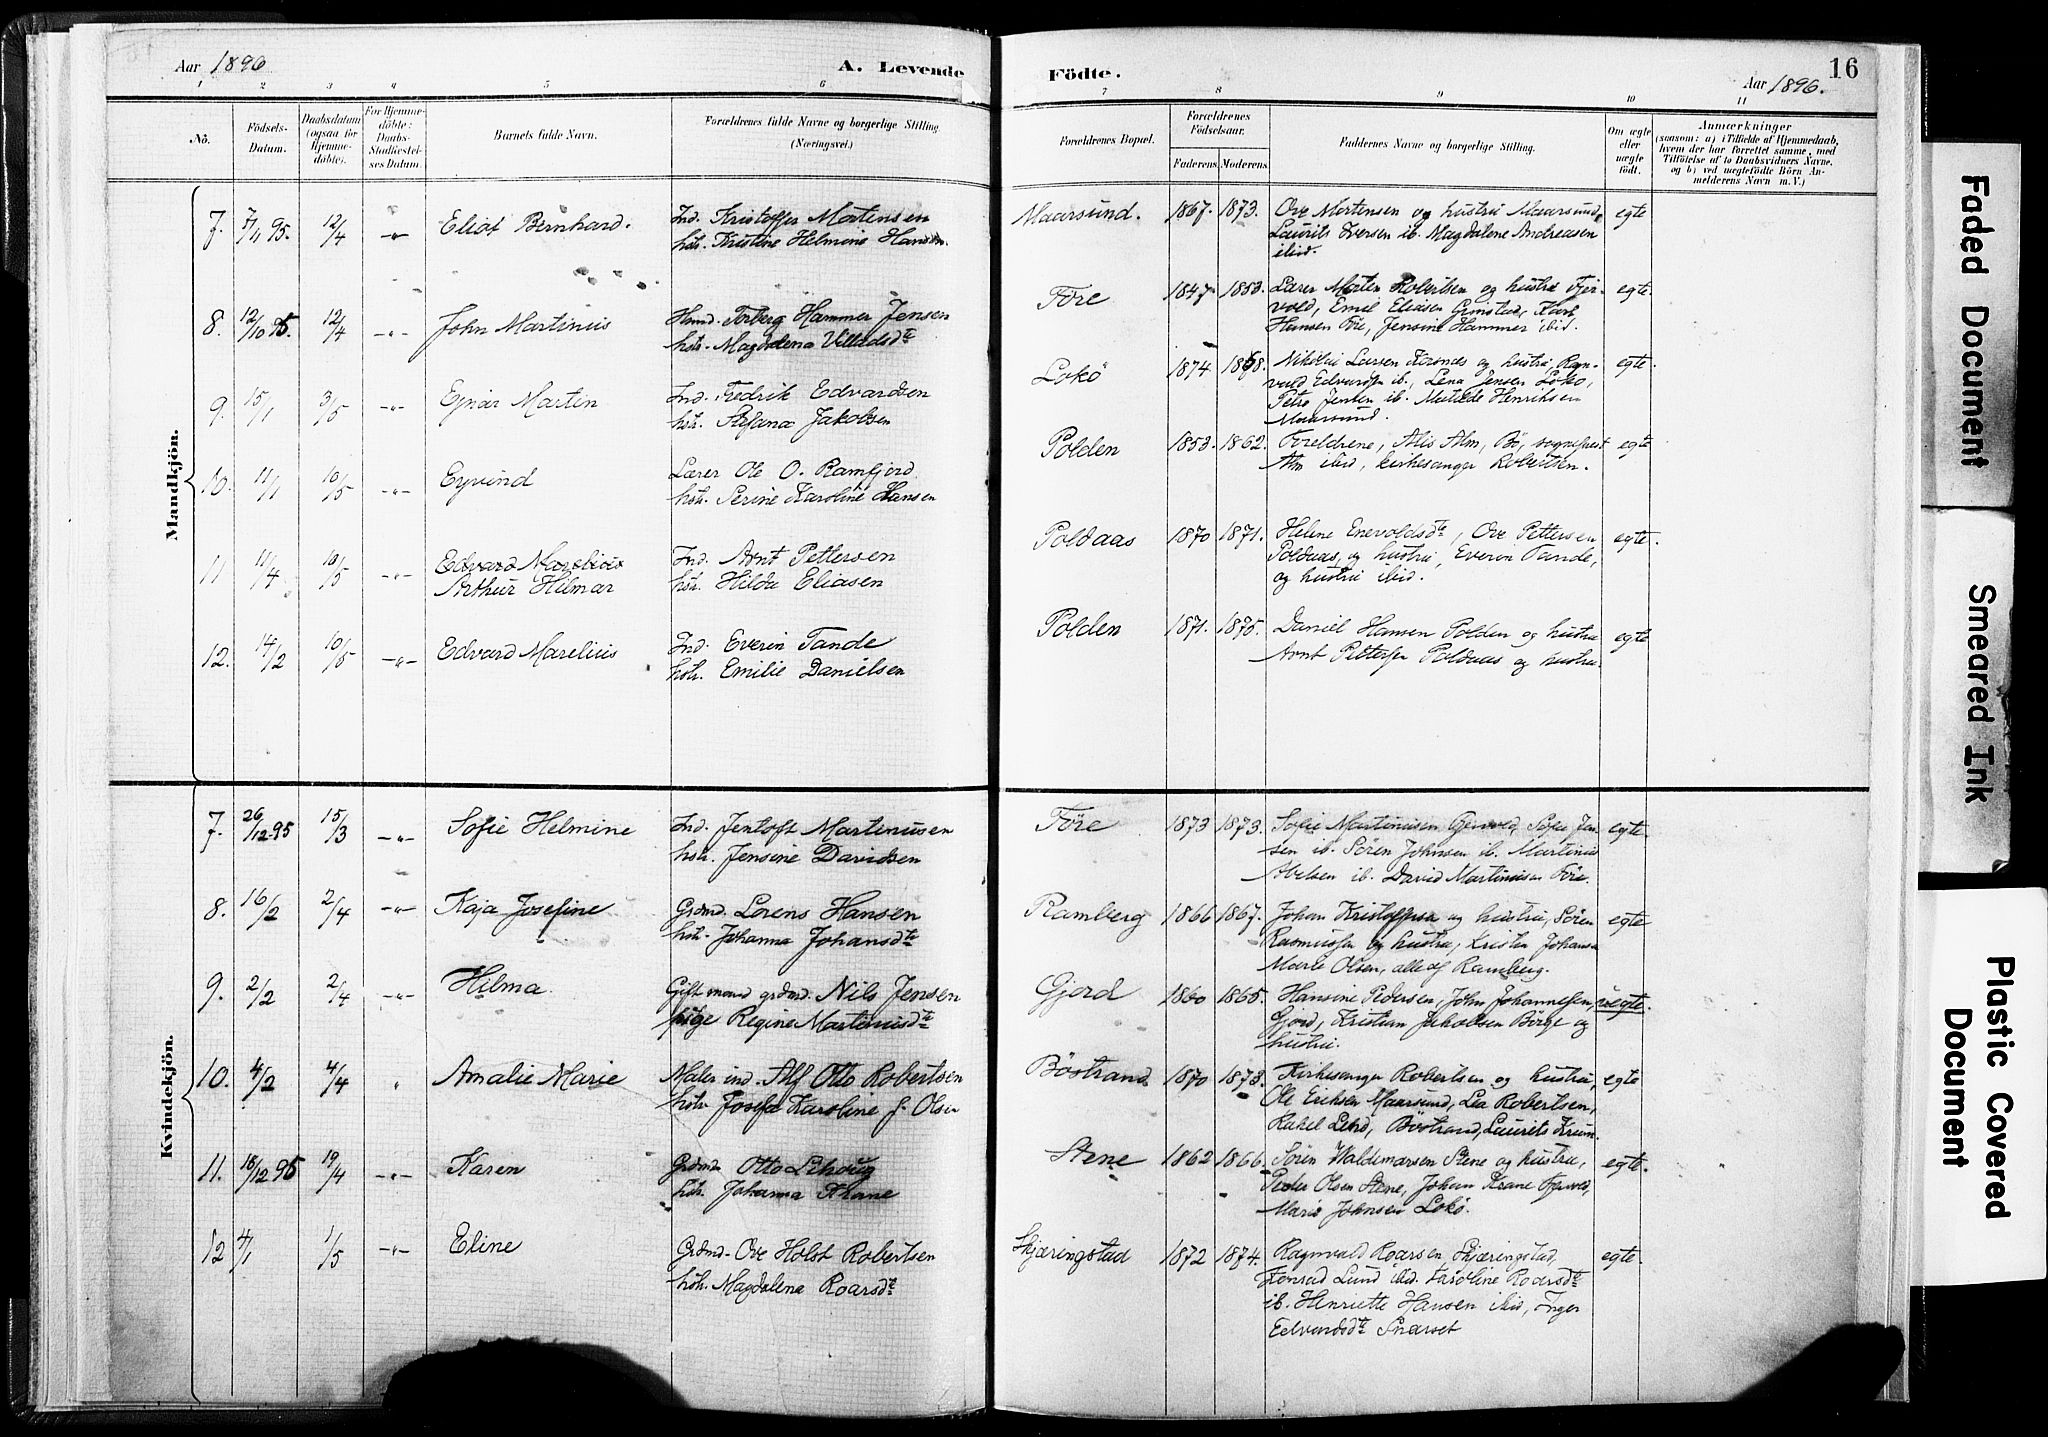 Aar 1896
A. Levende
Födte.
Aar 1896.
16
1 2 3 4 5 6 7 8 9 10 11
No.
Födsels-
Datum.
Daabsdatum
(ogsaa for
Hjemme-
döbte).
For Hjemme-
döbte:
Daabs-
Stadfæstel-
ses Datum.
Barnets fulde Navn.
Forældrenes fulde Navne og borgerlige Stilling.
(Næringsvei.)
Forældrenes Bopæl.
Forældrenes
Födselsaar.
Faderens. Moderens.
Faddernes Navne og borgerlige Stilling.
Om ægte
eller
uægte
födt.
Anmærkninger
(saasom: a) i Tilfælde af Hjemmedaab,
hvem der har forrettet samme, med
Tilföielse af to Daabsvidners Navne,
og b) ved uægtefödte Börn An-
melderens Navn m. V.)
Mandkjön.
7. 7/11 95. 12/4 -"- Eliot Bernhard. Ind. Kristoffer Mortensen
hstr. Kristine Helmine Hansen.
Maarsund. 1867. 1873. Ove Mortensen og hustru Maarsund, egte
Laurits Iversen ib. Magdalene Andreasen
ibid.
8. 12/10 95. 12/4 -"- John Martinus Hamd. Torberg Hammer Jensen
hstr. Magdalena Villadsdtr
Före 1847 1853. Lærer Morten Robertsen og hustru Fjer- egte.
vold, Emil Eliasen Grimstad,
Hansen Före, Jensine Hammer ibid.
9. 15/1 3/5 -"- Ejnar Martin Ind. Fredrik Edvardsen
hstr. Stefana Jakobsen
Lokö 1874 1868. Nikolai Larsen og hustru, Ragn- egte.
vald Edvardsen ib., Lena Jensen Lokö,
Petra Jensen ib. Matilde Henriksen
Maarsund.
10. 11/1 10/5 -"- Eyvind Lærer Ole O. Ramfjord
hstr. Serine Karoline Hansen
Polden 1853. 1862. Foreldrene, Alis Alm, Bö, sogneprest egte
Alm ibid, kirkesanger Robertsen.
11 11/4 10/5 -"- Edvard Marelius
Arthur Hilmar Ind. Arnt Pettersen
hstr. Hilda Eliasen
Poldaas 1870 1871. Helene Enevoldsdtr, Ove Pettersen egte.
Poldaas og hustru, Everin Tande,
og hustru ibid.
12. 14/2 10/5 -"- Edvard Marelius Ind. Everin Tande
hstr. Emilie Danielsen
Polden 1871. 1875. Daniel Hansen Polden og hustru egte
Arnt Pettersen Poldaas og hustru.
Kvindekjön.
7. 26/12-95 15/3 -"- Sofie Helmine Ind. Jentoft Martinusen
hstr. Jensine Davidsen
Före 1873 1873. Sofie Martinusen Fjervold, Sofie Jen- egte.
sen ib. Sören Johnsen ib. Martinus
Abelsen ib. David Martinusen Före.
8. 16/2 2/4 -"- Kaja Josefine Grdmd. Lorens Hansen
hstr. Johanna Johansdtr
Ramberg 1866 1867. Johan Kristoffersen og hustru, Sören egte
Rasmussen og hustru, Kristen Johansen
Marie Olsen, alle af Ramberg.
9. 2/2 2/4 -"- Hilma. Gift mand grdmd. Nils Jensen
pige Regine Martinusdtr
Gjord 1860 1865. Hansine Pedersen, John Johannessen, uegte.
Gjord, Kristian Jakobsen Börge og
hustru.
10. 4/2 4/4 " Amalie Marie Maler ind. Alf Otto Robertsen
hstr. Josefa Karoline f. Olsen
Böstrand 1870 1873. Kirkesanger Robertsen og hustru, egte
Ole Eriksen Maarsund, Lea Robertsen,
Rakel Lind, Böstrand, Laurits Krum.
11. 18/12 95 19/4 -"- Karen Grdmd Otto Lihaug
hstr. Johanna Krane
Stene 1862 1866. Sören Waldemarsen Stene og hustru, egte.
Peder Olsen Stene, Johan Krane Fjervold,
Marie Johnsen Lokö.
12 4/1 1/5 -"- Eline Grdmd. Ove Holst Robertsen
hstr. Magdalena Roarsdtr
Skjæringstad 1872 1874. Ragnvald Roarsen Skjæringstad, egte.
Konrad Lund ibid. Karoline Roarsdtr
ib. Henriette Hansen ibid, Inger
Edvardsdtr Snarset
Faded Document
Smeared Ink
Plastic Covered
Document